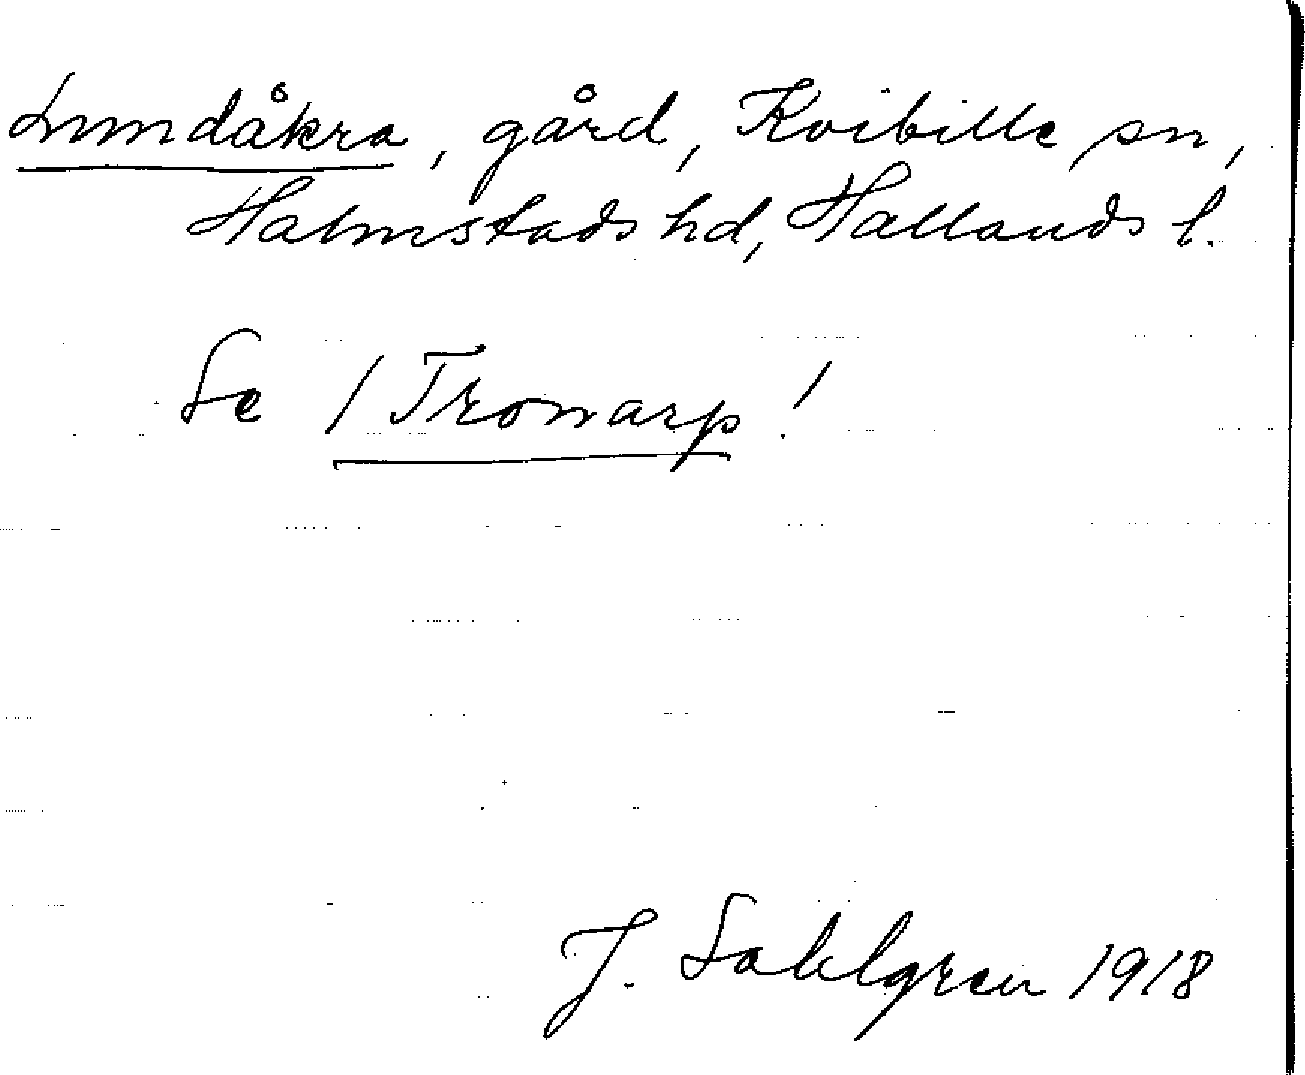 Lunndåkra, gård, Kvibille sn,
Halmstads hd, Hallands l.
Se / Tronarp!
J. Sahlgren 1918